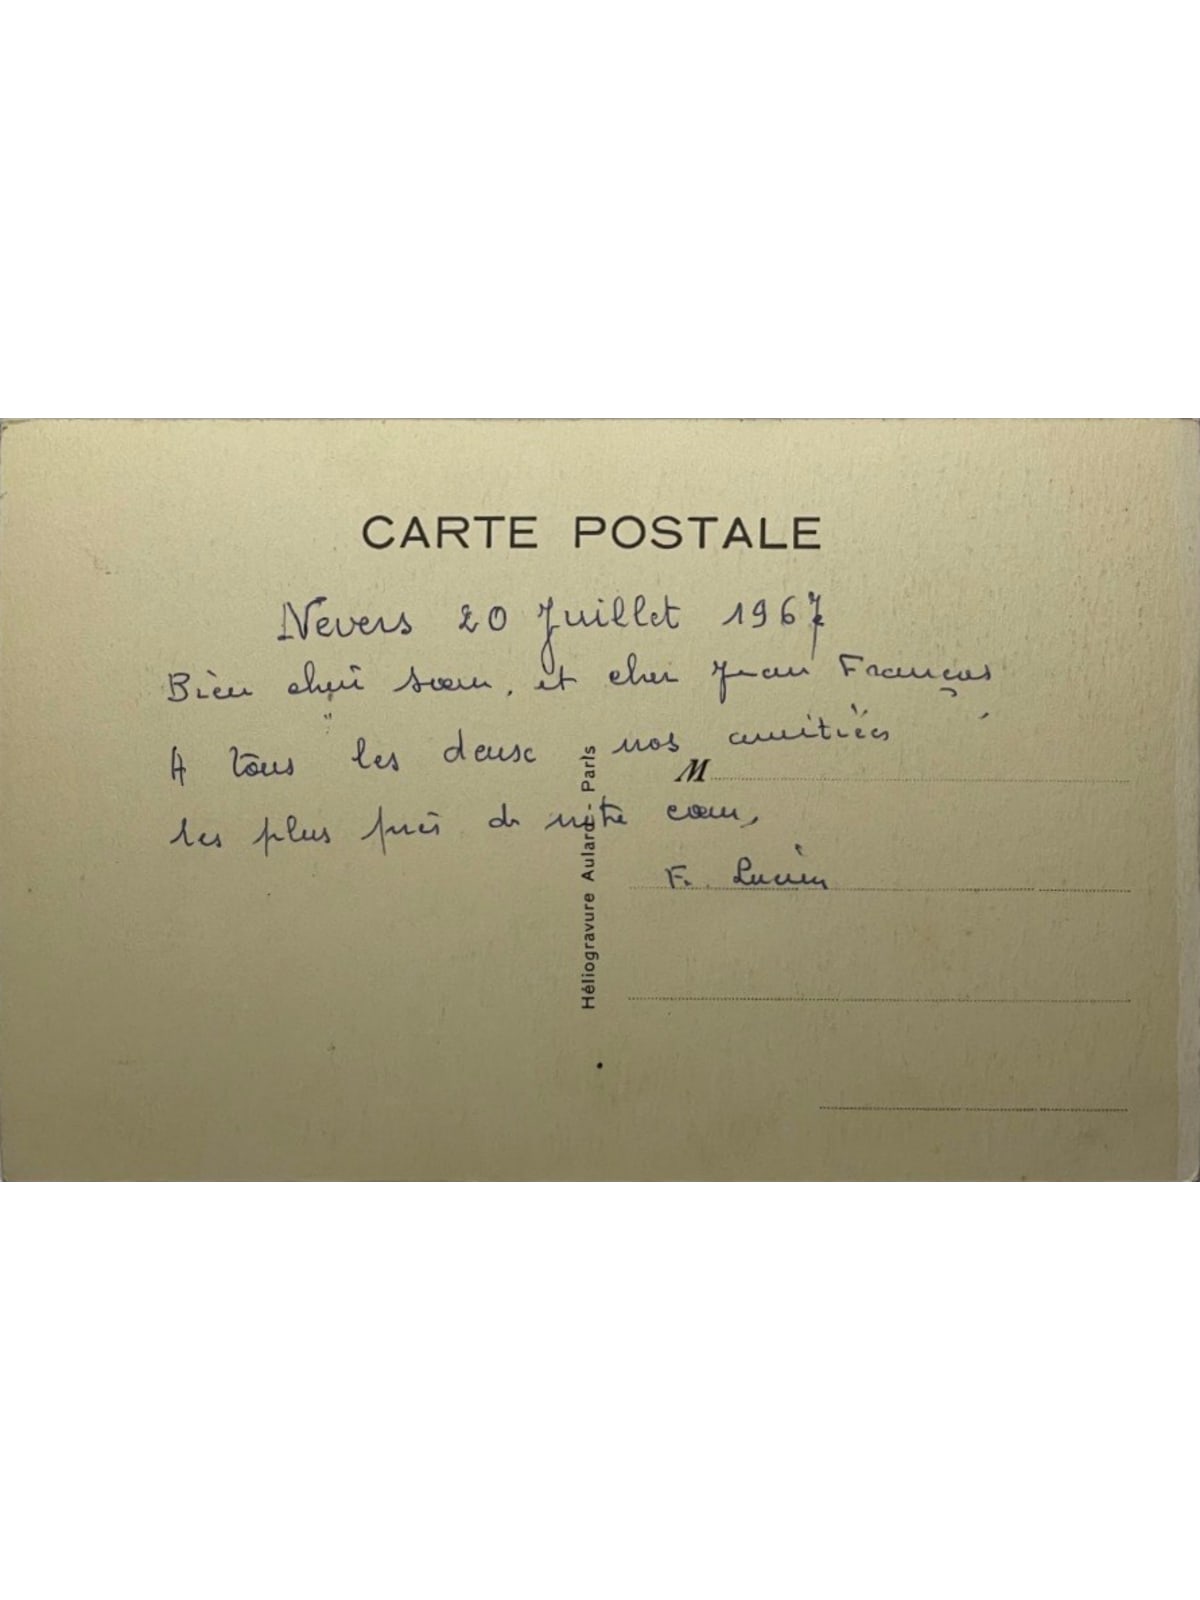 CARTE POSTALE
Nevers 20 Juillet 1967
Bien chère sœur, et cher Jean François
A tous les deux nos amitiées
M
les plus près de notre cœur,
F. Lucien
Héliogravure Aulard - Paris